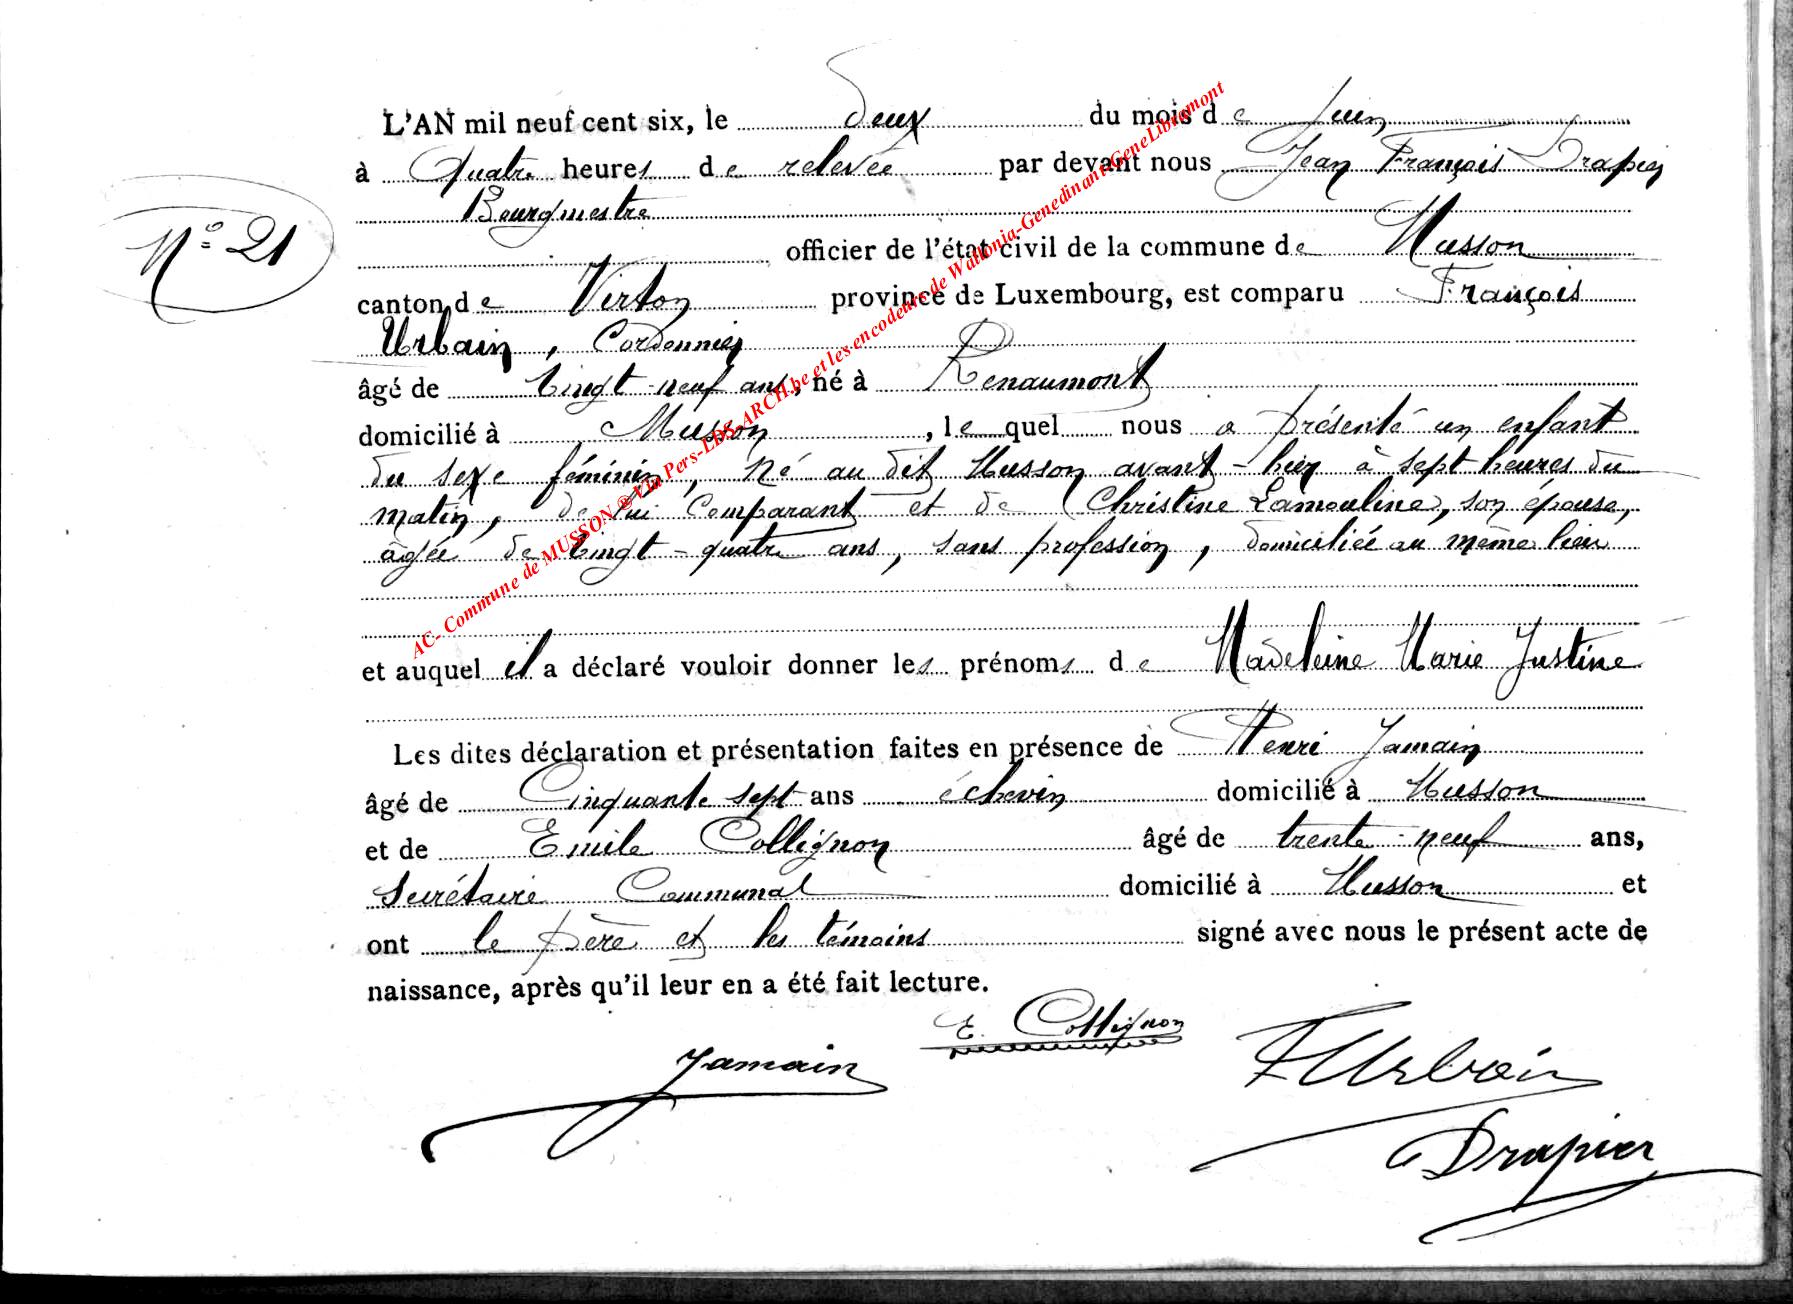 L'AN mil neuf cent six, le deux du mois de Juin
à Quatre heures de relevée par devant nous Jean François Drapier
Bourgmestre
N° 21
officier de l'état civil de la commune de Musson
canton de Virton province de Luxembourg, est comparu François
Urbain, Cordonnier
âgé de vingt-neuf ans, né à Renaumont
domicilié à Musson, lequel nous a présenté un enfant
du sexe féminin, né au dit Musson avant-hier à sept heures du
matin, de lui Comparant et de Christine Lamouline, son épouse,
âgée de vingt-quatre ans, sans profession, domiciliée au même lieu
et auquel il a déclaré vouloir donner les prénoms de Madeleine Marie Justine
Les dites déclaration et présentation faites en présence de Henri Jamain
âgé de Cinquante sept ans échevin domicilié à Musson
et de Emile Collignon âgé de trente-neuf ans,
Secrétaire Communal domicilié à Musson et
ont le père et les témoins signé avec nous le présent acte de
naissance, après qu'il leur en a été fait lecture.
E. Collignon
Jamain
F Urbain
Drapier
AC- Commune de MUSSON ® Via Pers-LDS-ARCH.be et les encodeurs de Wallonia-Genedinant-GeneLibramont